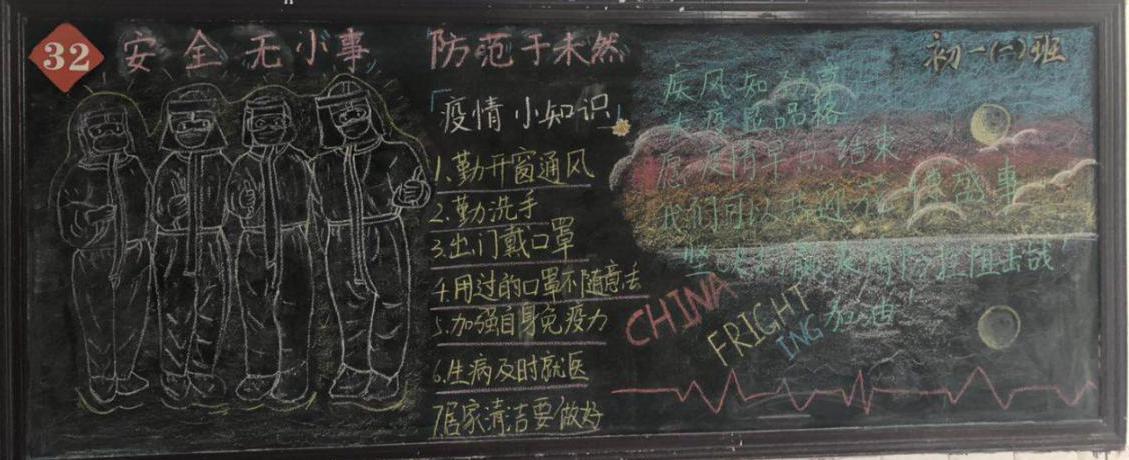 32
安全无小事 防范于未然
初一(一)班
「疫情小知识」
1.勤开窗通风
2.勤洗手
3.出门戴口罩
4.用过的口罩不随意去
5.加强自身免疫力
6.生病及时就医
7居家清洁要做好
疾风知劲草
大疫显品格
愿疫情早日结束
我们可以 盛事
坚决 赢疫情防控阻击战
加油
CHINA
FRIGHT
ING